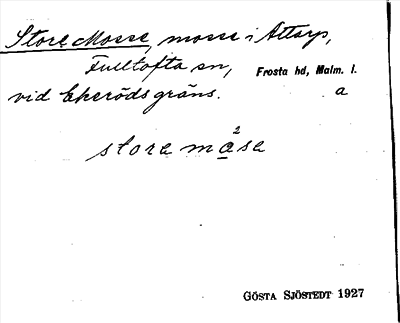 Store Mosse, mosse i Attarp,
Fulltofta sn, Frosta hd, Malm. l.
vid Ekeröds gräns. a
store måse 2
GÖSTA SJÖSTEDT 1927